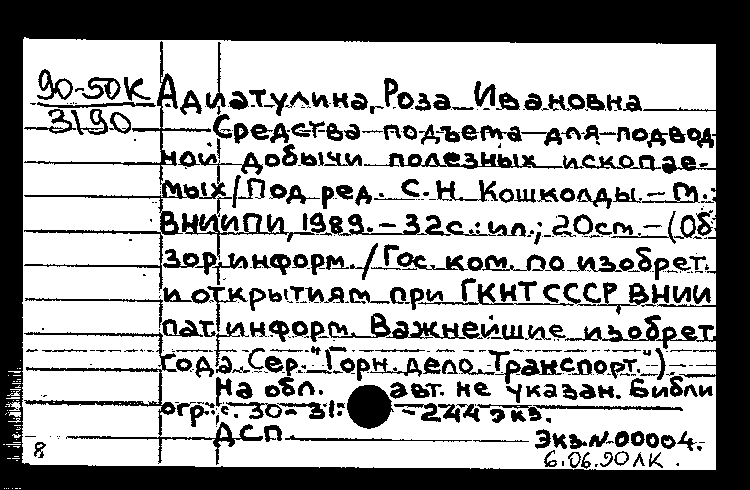 90-50К Адиатулина, Роза Ивановна
3190 Средства подъема для подвод
ной добычи полезных ископае-
мых/Под ред. С.Н. Кошколды.- М.:
ВНИИПИ, 1989.- 32с.: ил.; 20см.-(Об
зор. информ./Гос. ком. по изобрет.
и открытиям при ГКНТ СССР, ВНИИ
пат. информ. Важнейшие изобрет.
года. Сер. "Горн. дело. Транспорт.").
На обл. авт. не указан. Библи
огр.: с. 30-31. - 244 экз.
ДСП.
Экз. N-00004.
8 6.06.90 ЛК.